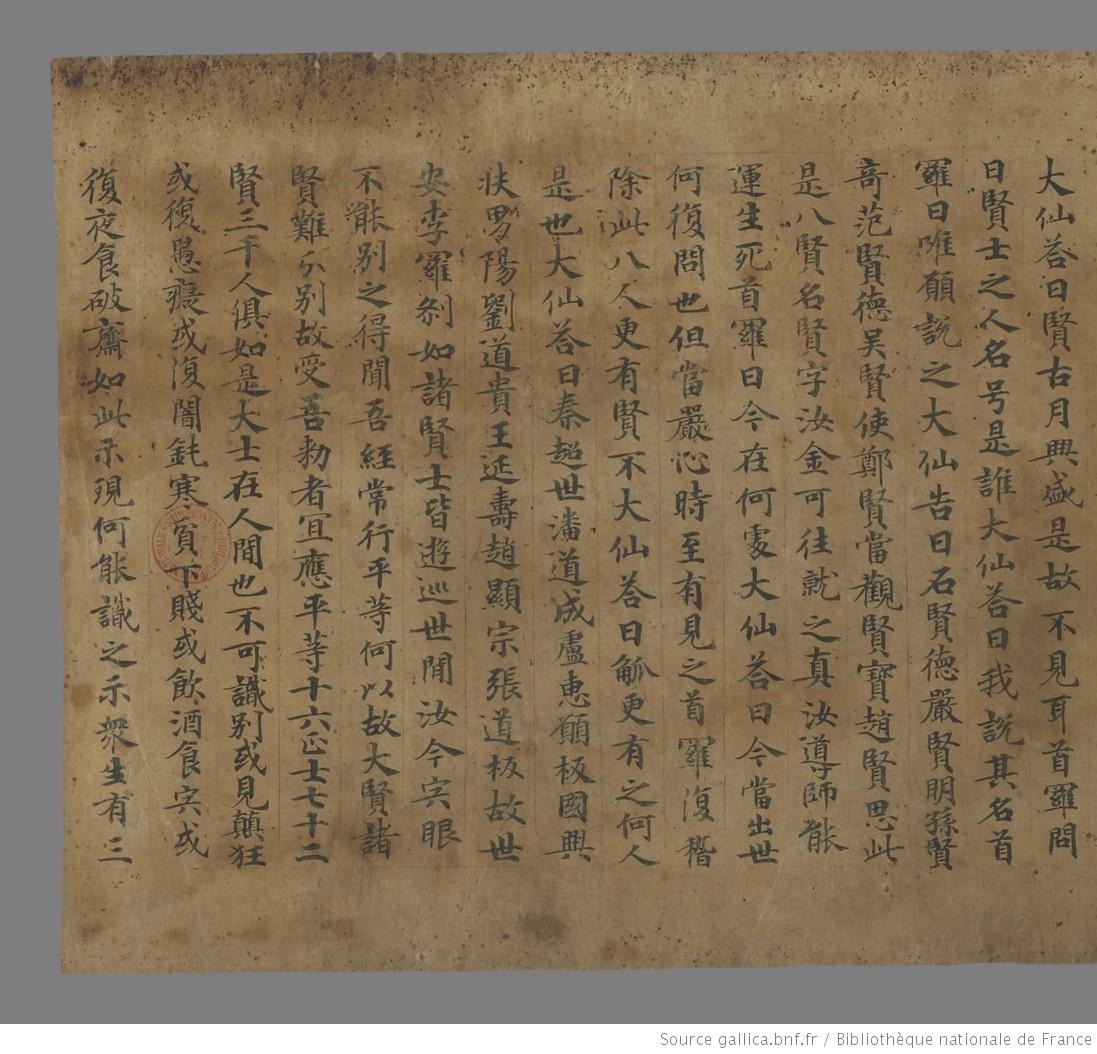 大仙荅曰賢古月興盛是故不見耳首羅問
曰賢士之人名号是誰大仙荅曰我說其名首
羅曰唯願說之大仙告曰石賢德嚴賢明孫賢
奇范賢德吴賢使鄭賢當觀賢寶趙賢思此
是八賢名賢字汝金可往就之真汝導師能
運生死首羅曰今在何處大仙荅曰今當出世
何復問也但當嚴心時至有見之首羅復稽
除此八人更有賢不大仙荅曰觚更有之何人
是也大仙荅曰秦超世潘道成盧惠願板國興
扶男陽劉道貴王延壽趙顯宗張道板故世
安李羅刹如諸賢士皆遊巡世間汝今宍眼
不能別之得聞吾經常行平等何以故大賢諸
賢難分別故受吾勑者宜應平等十六正士七十二
賢三千人俱如是大士在人間也不可識別或見顛狂
或復愚癡或復闇鈍寒貧下賤或飲酒食宍或
復夜食破齋如此示現何能識之示衆生有三
Source gallica.bnf.fr / Bibliothèque nationale de France